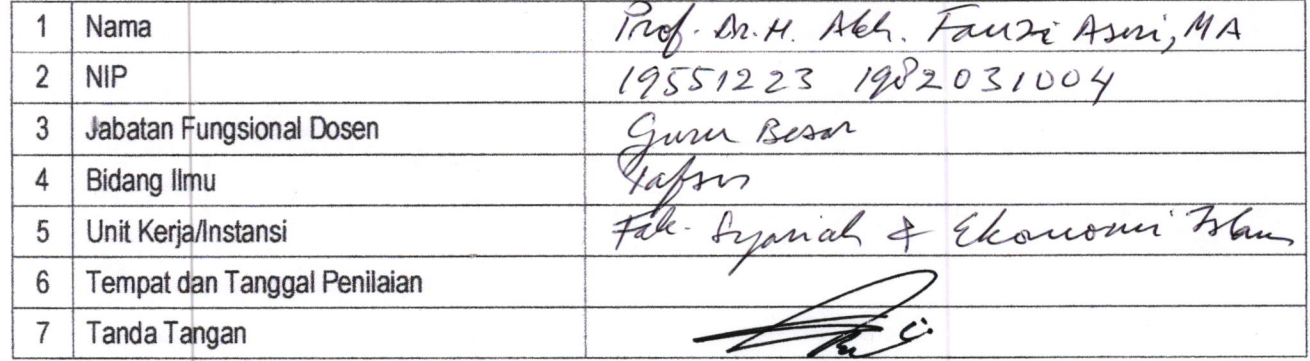 1 Nama Prof. Dr. H. Akh. Fauzi Aseri, MA
2 NIP 19551223 1982031004
3 Jabatan Fungsional Dosen Guru Besar
4 Bidang Ilmu Tafsir
5 Unit Kerja/Instansi Fak. Syariah & Ekonomi Islam
6 Tempat dan Tanggal Penilaian
7 Tanda Tangan